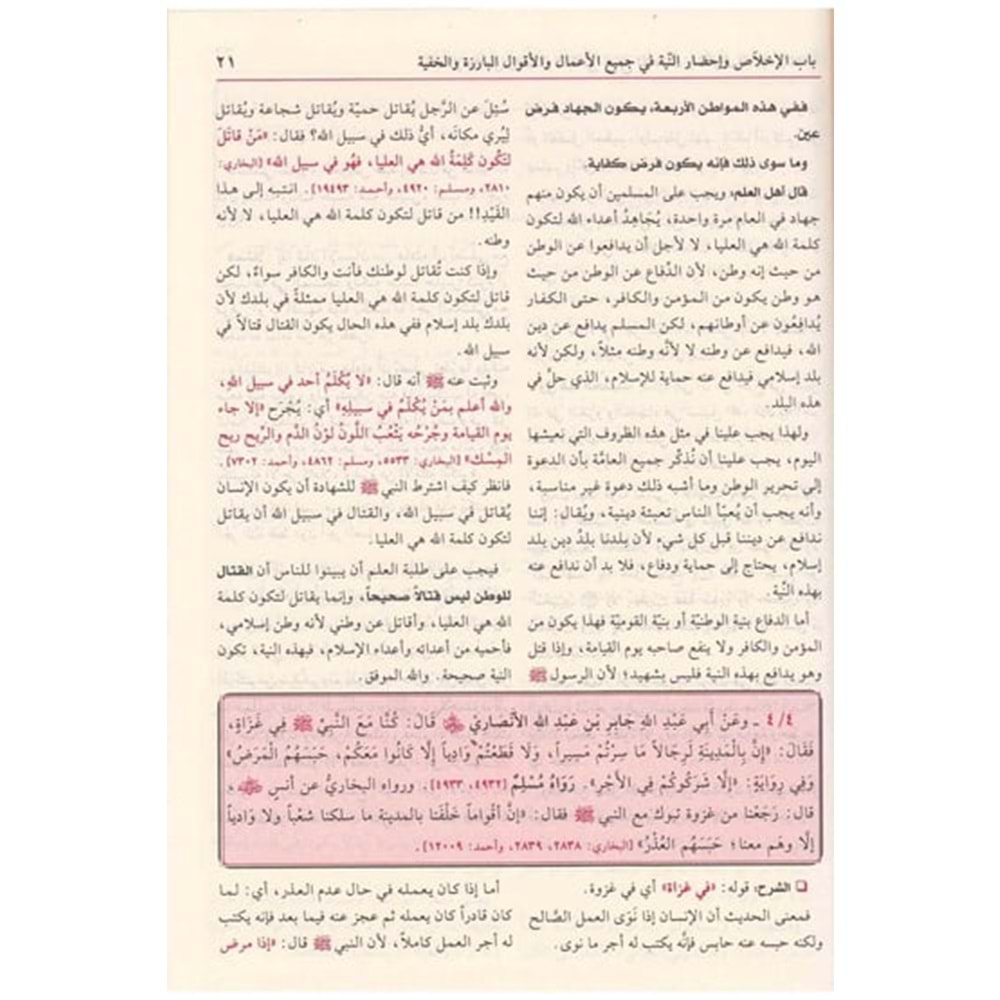 باب الإخلاص وإحضار النيّة في جميع الأعمال والأقوال البارزة والخفية ٢١
ففي هذه المواطن الأربعة، يكون الجهاد فرض
عين.
وما سوى ذلك فإنه يكون فرض كفاية.
قال أهل العلم: ويجب على المسلمين أن يكون منهم
جهاد في العام مرة واحدة، يُجَاهِدُ أعداء الله لتكون
كلمة الله هي العليا، لا لأجل أن يدافعوا عن الوطن
من حيث إنه وطن، لأن الدِّفاع عن الوطن من حيث
هو وطن يكون من المؤمن والكافر، حتى الكفار
يُدافِعُون عن أوطانهم، لكن المسلم يدافع عن دين
الله، فيدافع عن وطنه لا لأنّه وطنه مثلاً، ولكن لأنه
بلد إسلامي فيدافع عنه حماية للإسلام، الذي حلّ في
هذه البلد.
ولهذا يجب علينا في مثل هذه الظروف التي نعيشها
اليوم، يجب علينا أن نُذكّر جميع العامّة بأن الدعوة
إلى تحرير الوطن وما أشبه ذلك دعوة غير مناسبة،
وأنه يجب أن يُعبّأ الناس تعبئة دينية، ويُقال: إننا
ندافع عن ديننا قبل كل شيء لأن بلدنا بلدُ دين بلد
إسلام، يحتاج إلى حماية ودفاع، فلا بد أن ندافع عنه
بهذه النّية.
أما الدفاع بنية الوطنيّة أو بنيّة القوميّة فهذا يكون من
المؤمن والكافر ولا ينفع صاحبه يوم القيامة، وإذا قتل
وهو يدافع بهذه النية فليس بشهيد؛ لأن الرسول ﷺ
سُئِلَ عن الرَّجل يُقاتل حميّة ويُقاتل شجاعة ويُقاتل
لِيُري مكانَه، أيُّ ذلك في سبيل الله؟ فقال: «مَنْ قاتَلَ
لتَكُون كَلِمَةُ الله هي العليا، فهُو في سبيل الله» [البخاري:
٢٨١٠، ومسلم: ٤٩٢٠، وأحمد: ١٩٤٩٣]. انتبه إلى هذا
القَيْدِ!! من قاتل لتكون كلمة الله هي العليا، لا لأنه
وطنه.
وإذا كنت تُقاتل لوطنك فأنت والكافر سواءٌ، لكن
قاتل لتكون كلمة الله هي العليا ممثلةً في بلدك لأن
بلدك بلد إسلام ففي هذه الحال يكون القتال قتالاً في
سبيل الله.
وثبت عنه ﷺ أنه قال: «لا يُكْلَمُ أحد في سبيل اللهِ،
والله أعلم بمَنْ يُكْلَمُ في سبيلِهِ» أي: يُجْرَح «إلا جاء
يوم القيامة وجُرْحُه يَثْعُبُ اللَّونُ لونُ الدَّم والرِّيح ريح
المِسْك» [البخاري: ٥٥٣٣، ومسلم: ٤٨٦٢، وأحمد: ٧٣٠٢].
فانظر كيف اشترط النبي ﷺ للشهادة أن يكون الإنسان
يُقاتل في سبيل الله، والقتال في سبيل الله أن يقاتل
لتكون كلمة الله هي العليا.
فيجب على طلبة العلم أن يبينوا للناس أن القتال
للوطن ليس قتالاً صحيحاً، وإنما يقاتل لتكون كلمة
الله هي العليا، وأقاتل عن وطني لأنه وطن إسلامي،
فأحميه من أعدائه وأعداء الإسلام، فبهذه النية، تكون
النية صحيحة. والله الموفق.
٤/ ٤ ـ وعَنْ أبي عَبْدِ اللهِ جَابِرِ بْنِ عَبْدِ الله الأَنْصَاريِّ ﷺ قَالَ: كُنَّا مَعَ النَّبِيِّ ﷺ فِي غَزَاةٍ،
فَقَالَ: «إِنَّ بِالْمَدِينَةِ لَرِجَالاً مَا سِرْتُمْ مَسِيراً، وَلَا قَطَعْتُمْ وَادِياً إِلَّا كَانُوا مَعَكُمْ، حَبَسَهُمُ الْمَرَضُ»
وَفِي رِوَايَةٍ: «إلَّا شَرَكُوكُمْ فِي الأَجْرِ». رَوَاهُ مُسْلِمٌ [٤٩٣٢، ٤٩٣٣]. ورواه البخاريُّ عن أنسٍ ﷺ،
قال: رَجَعْنا من غزوة تبوك مع النبي ﷺ فقال: «إنَّ أقْوَاماً خَلْفَنا بالمدينة ما سلكنا شعْباً ولا وَادياً
إلَّا وهُم معنا؛ حَبَسَهُم العُذْرُ» [البخاري: ٢٨٣٨، ٢٨٣٩، وأحمد: ١٢٠٠٩].
❑ الشرح: قوله: «في غَزاة» أي في غزوة.
فمعنى الحديث أن الإنسان إذا نَوَى العمل الصَّالح
ولكنه حبسه عنه حابس فإنّه يكتب له أجر ما نوى.
أما إذا كان يعمله في حال عدم العذر، أي: لما
كان قادراً كان يعمله ثم عجز عنه فيما بعد فإنه يكتب
له أجر العمل كاملاً، لأن النبي ﷺ قال: «إذا مرض